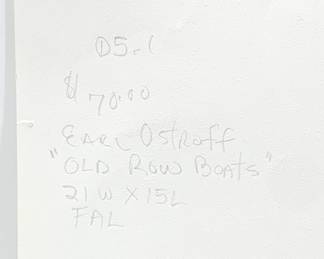 D5.1
$70.00
Earl Ostroff
"Old Row Boats"
21W X 15L
FAL